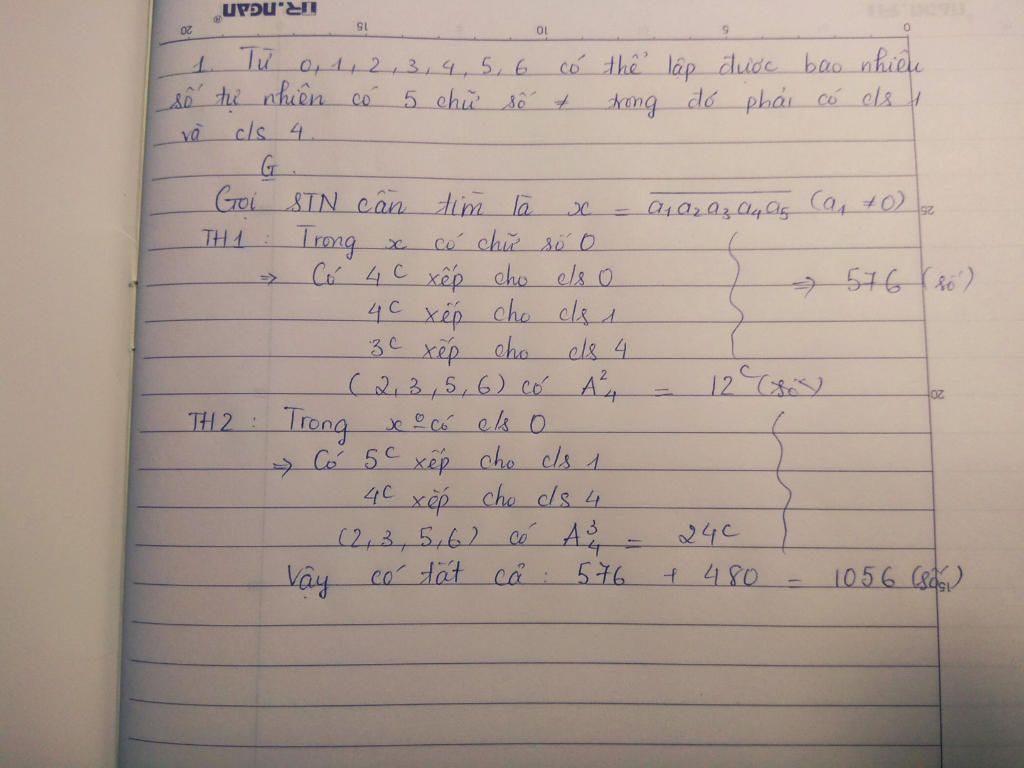 UR.NGAN®
20 15 10 5 0
1. Từ 0, 1, 2, 3, 4, 5, 6 có thể lập được bao nhiêu
số tự nhiên có 5 chữ số ≠ trong đó phải có cls 1
và cls 4.
G.
Gọi STN cần tìm là x = a₁a₂a₃a₄a₅ (a₁ ≠ 0)
25
TH1 : Trong x có chữ số 0
⇒ Có 4C xếp cho cls 0 ⇒ 576 (số)
4C xếp cho cls 1
3C xếp cho cls 4
(2, 3, 5, 6) có A²₄ = 12C (số)
20
TH2 : Trong x ō có cls 0
⇒ Có 5C xếp cho cls 1
4C xếp cho cls 4
(2, 3, 5, 6) có A³₄ = 24C
Vậy có tất cả : 576 + 480 = 1056 (số)
15